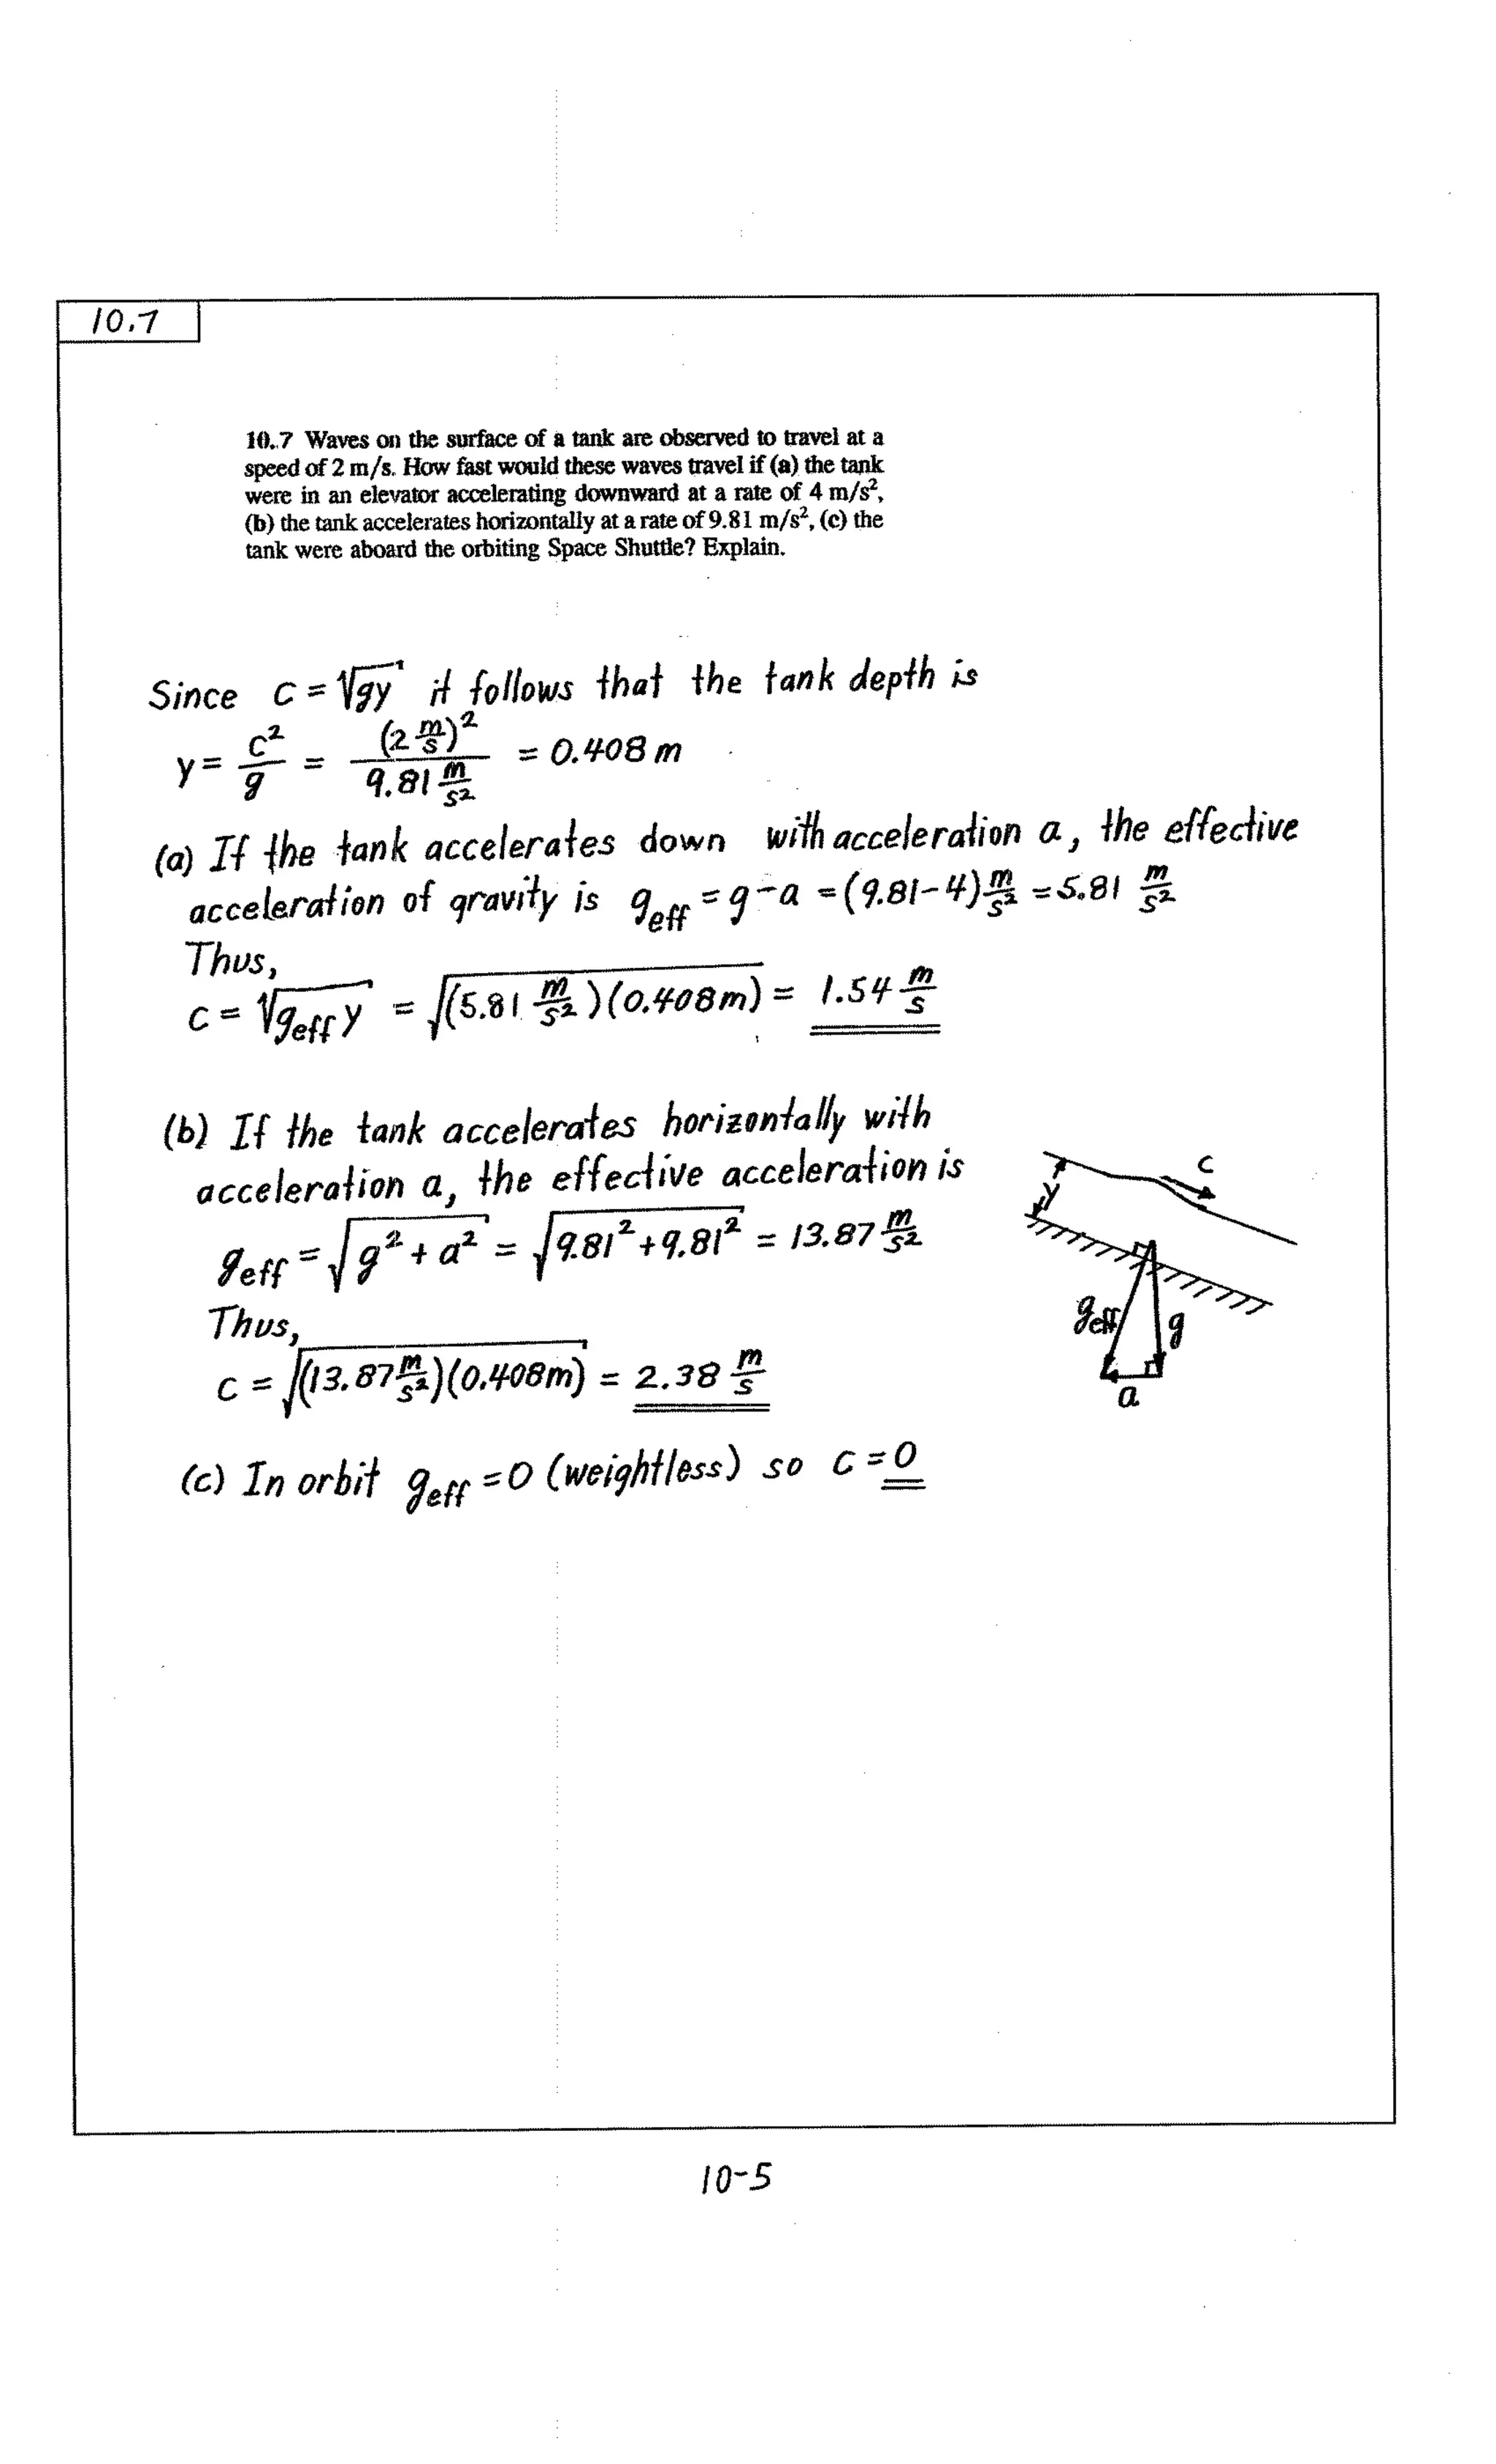 10.7
10.7 Waves on the surface of a tank are observed to travel at a
speed of 2 m/s. How fast would these waves travel if (a) the tank
were in an elevator accelerating downward at a rate of 4 m/s²,
(b) the tank accelerates horizontally at a rate of 9.81 m/s², (c) the
tank were aboard the orbiting Space Shuttle? Explain.
Since c = √gy it follows that the tank depth is
y = c²/g = (2 m/s)²/9.81 m/s² = 0.408 m
(a) If the tank accelerates down with acceleration a, the effective
acceleration of gravity is g_eff = g - a = (9.81-4) m/s² = 5.81 m/s²
Thus,
c = √(g_eff y) = √((5.81 m/s²)(0.408m)) = 1.54 m/s
(b) If the tank accelerates horizontally with
acceleration a, the effective acceleration is
g_eff = √(g² + a²) = √(9.81² + 9.81²) = 13.87 m/s²
Thus,
c = √((13.87 m/s²)(0.408m)) = 2.38 m/s
c
y
g_eff
g
a
(c) In orbit g_eff = 0 (weightless) so c = 0
10-5